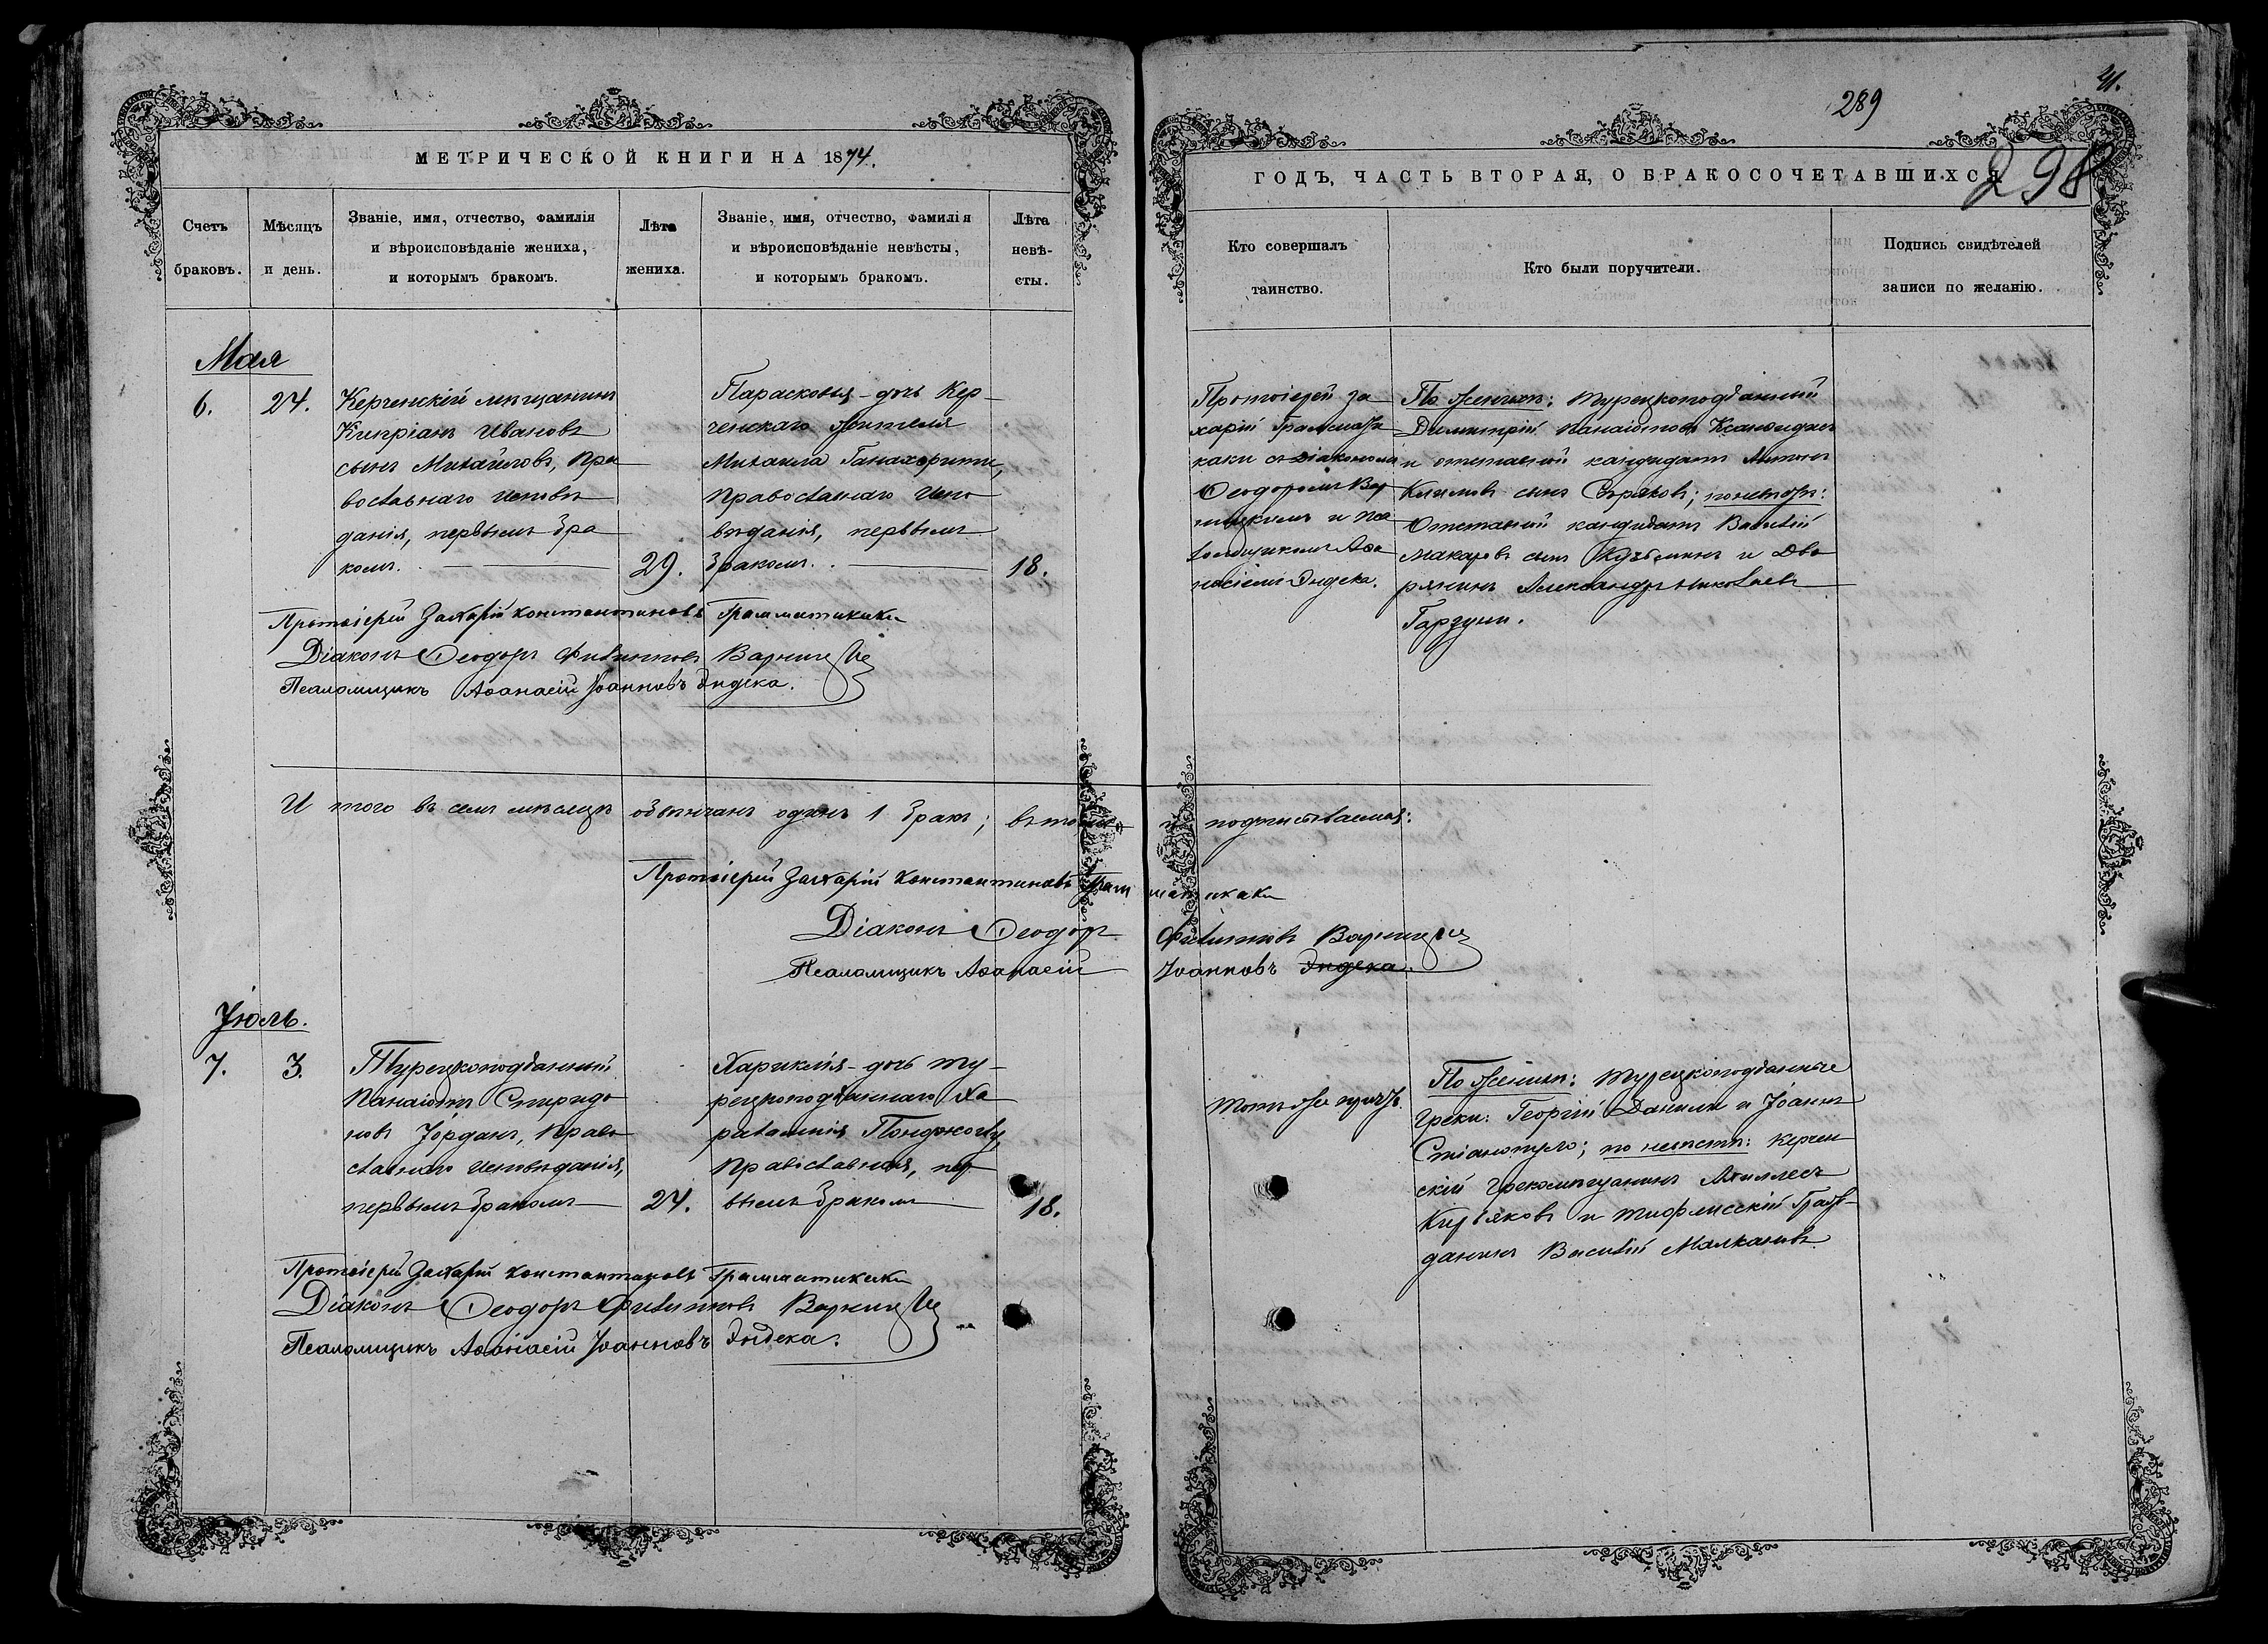 МЕТРИЧЕСКОЙ КНИГИ НА 1874.
Счетъ браковъ.
Мѣсяцъ и день.
Званіе, имя, отчество, фамилія
и вѣроисповѣданіе жениха,
и которымъ бракомъ.
Лѣта
жениха.
Званіе, имя, отчество, фамилія
и вѣроисповѣданіе невѣсты,
и которымъ бракомъ.
Лѣта
невѣ-
сты.
Мая
6.
24.
Керченскій мѣщанинъ
Кипріанъ Ивановъ
сынъ Михайловъ, Пра
вославнаго исповѣ
данія, первымъ бра
комъ.
29.
Парасковья - дочь Кер-
ченскаго жителя
Михаила
Православнаго испо
вѣданія, первымъ
бракомъ.
18.
Протоіерей Захарій Константиновъ Грамматикаки
Діаконъ Ѳеодоръ Филипповъ
Псаломщикъ Аѳанасій Іоанновъ Эндека.
И того въ семъ мѣсяцѣ обвѣнчанъ одинъ 1 бракъ; въ томъ и подписываемся:
Протоіерей Захарій Константиновъ Грамматикаки
Діаконъ Ѳеодоръ Филипповъ
Псаломщикъ Аѳанасій Іоанновъ Эндека.
Іюль.
7.
3.
Турецкоподданный
Панаіотъ Спиридо
новъ Іорданъ, Право
славнаго исповѣданія,
первымъ бракомъ
24.
Хариклія - дочь ту-
рецкоподданнаго Ха
ралампія
Православная, пер
вымъ бракомъ
18.
Протоіерей Захарій Константиновъ Грамматикаки
Діаконъ Ѳеодоръ Филипповъ
Псаломщикъ Аѳанасій Іоанновъ Эндека.
289
41.
298
ГОДЪ, ЧАСТЬ ВТОРАЯ, О БРАКОСОЧЕТАВШИХСЯ
Кто совершалъ
таинство.
Кто были поручители.
Подпись свидѣтелей
записи по желанію.
Протоіерей За
харій Граммати
каки съ діакономъ
Ѳеодоромъ Вар
ницкимъ и пса
ломщикомъ Аѳа
насіемъ Эндека.
По женихѣ: Турецкоподданный
Димитрій Панаіотовъ
и отставной кандидатъ Антонъ
Климовъ сынъ по невѣстѣ:
Отставной кандидатъ Василій
Макаровъ сынъ Кузьминъ и Дво
рянинъ Александръ Николаевъ
Тотъ же причтъ.
По женихѣ: Турецкоподданные
Греки: Георгій Данили и Іоаннъ
по невѣстѣ: Керчен
скій грекомѣщанинъ Ахиллесъ
Кирьяковъ и Тифлисскій Граж-
данинъ Василій